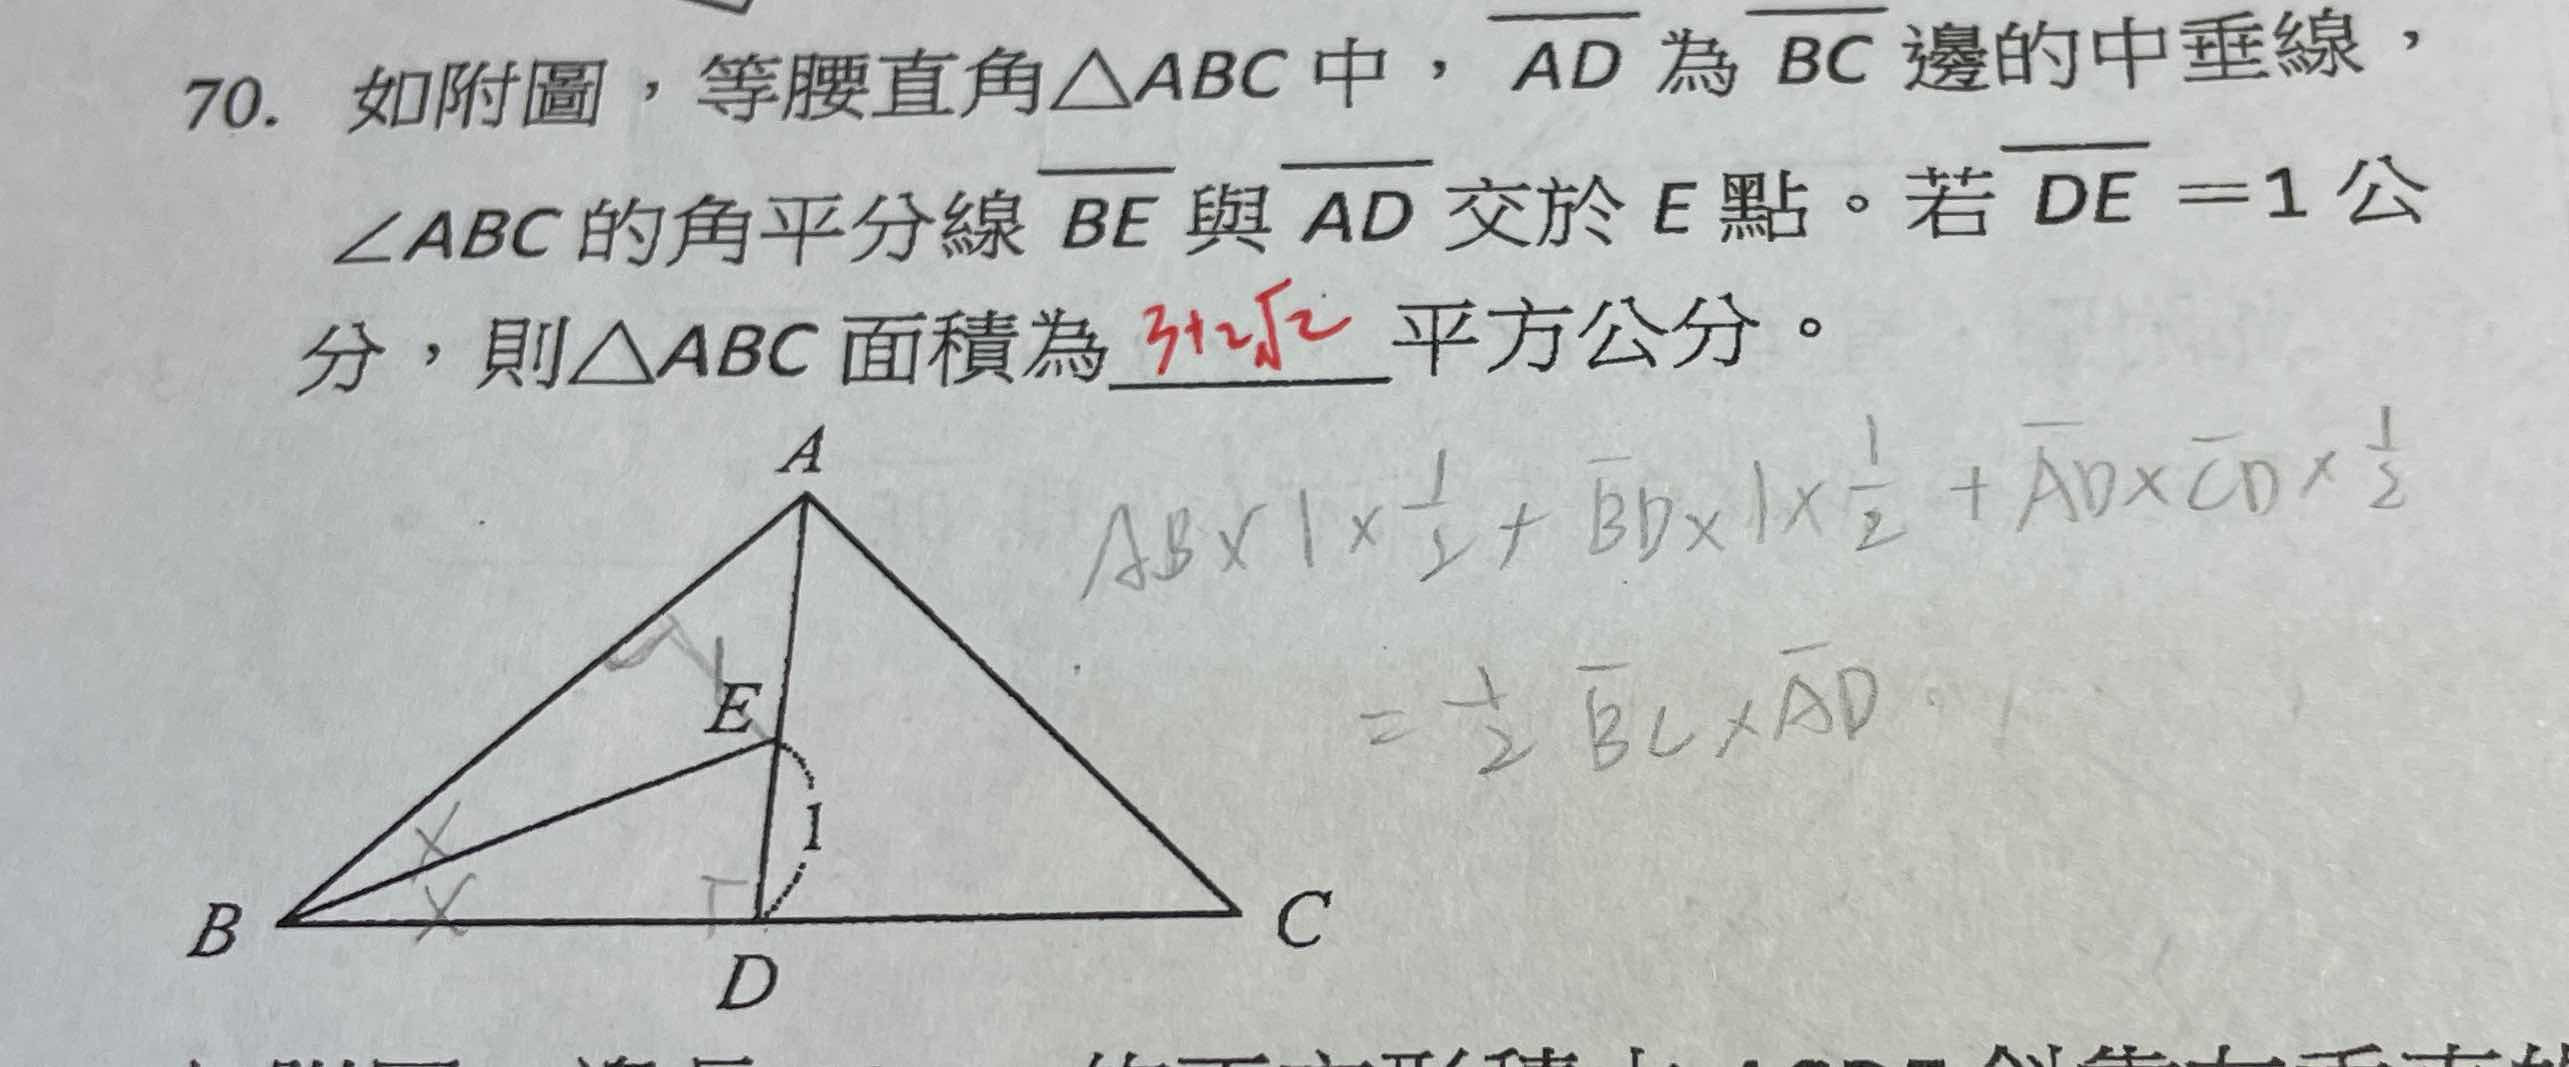 70. 如附圖，等腰直角△ABC 中，AD 為 BC 邊的中垂線，
∠ABC 的角平分線 BE 與 AD 交於 E 點。若 DE ＝1 公
分，則△ABC 面積為 3+2√2 平方公分。
A
AB×1×1/2+BD×1×1/2+AD×CD×1/2
1
E
=1/2 BC×AD
1
B
C
D